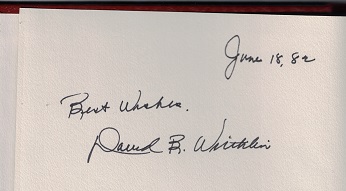 June 18, 82
Best Wishes.
David B. Wirthlin